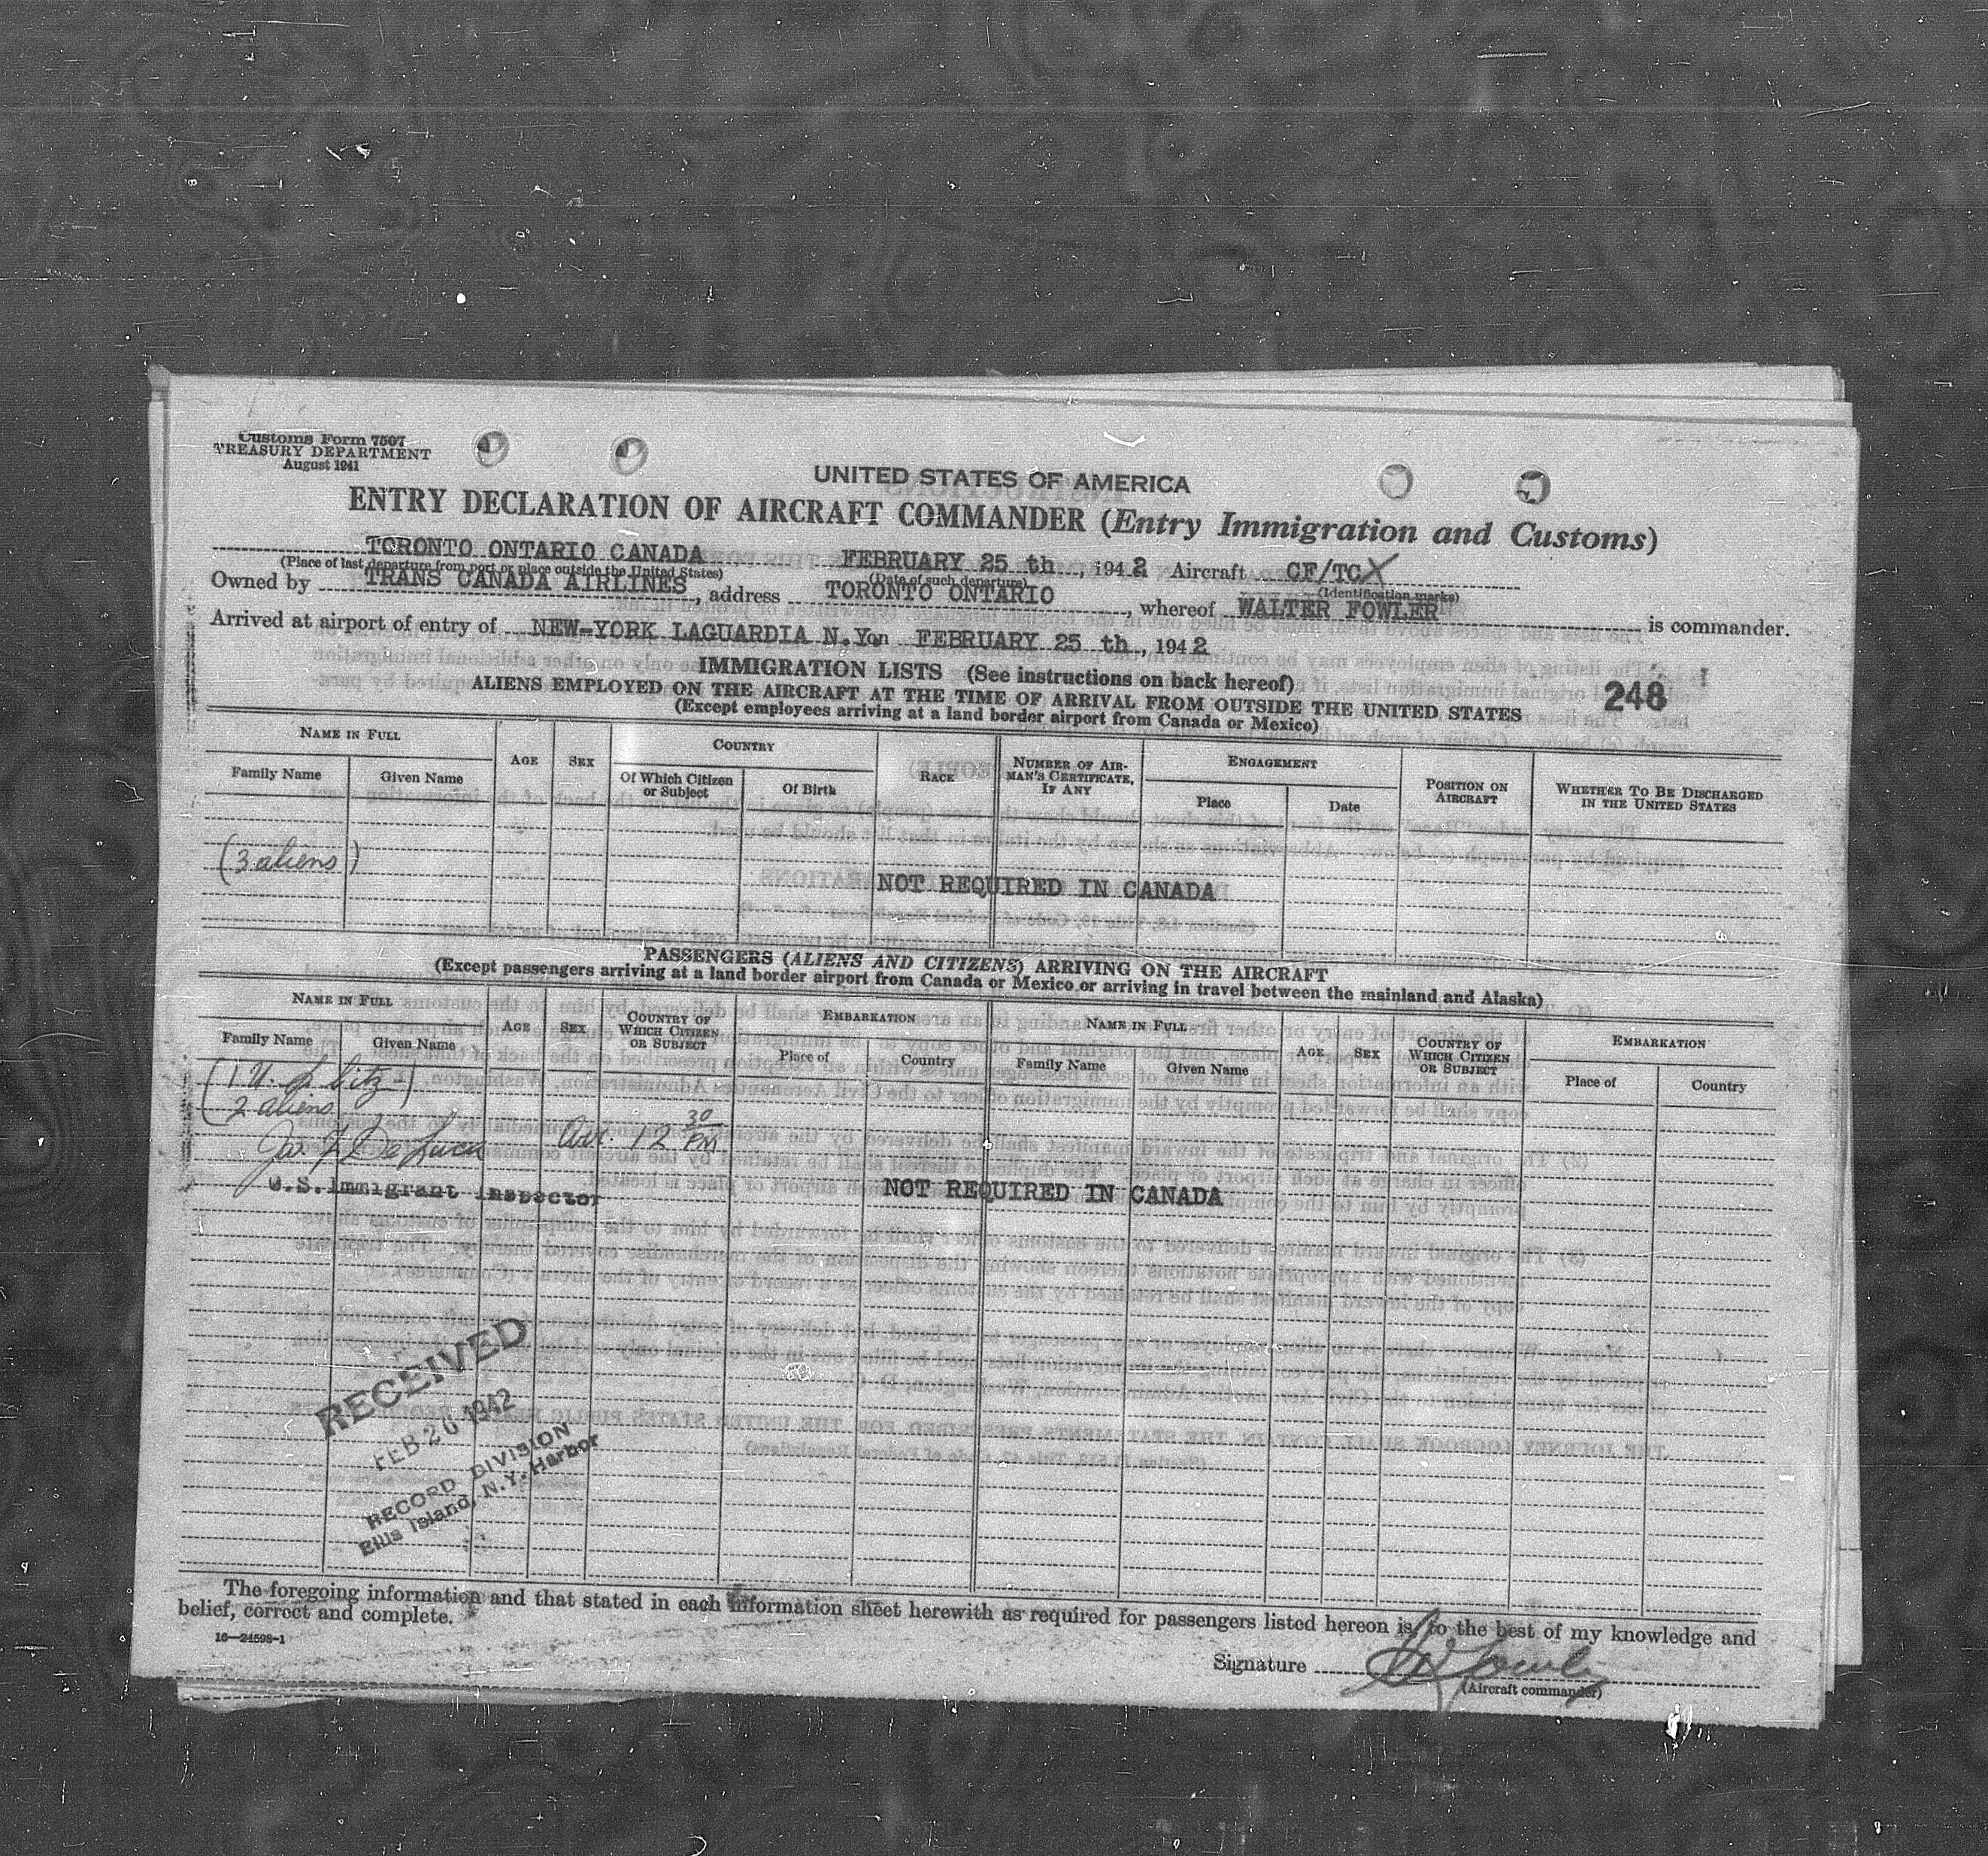 Customs Form 7507
TREASURY DEPARTMENT
August 1941
UNITED STATES OF AMERICA
ENTRY DECLARATION OF AIRCRAFT COMMANDER (Entry Immigration and Customs)
TORONTO ONTARIO CANADA FEBRUARY 25 th, 1942 Aircraft CF/TCX
(Place of last departure from port or place outside the United States) (Date of such departure) (Identification marks)
Owned by TRANS CANADA AIRLINES, address TORONTO ONTARIO, whereof WALTER FOWLER is commander.
Arrived at airport of entry of NEW-YORK LAGUARDIA N.Y on FEBRUARY 25 th, 1942
IMMIGRATION LISTS (See instructions on back hereof)
248
ALIENS EMPLOYED ON THE AIRCRAFT AT THE TIME OF ARRIVAL FROM OUTSIDE THE UNITED STATES
(Except employees arriving at a land border airport from Canada or Mexico)
NAME IN FULL AGE SEX COUNTRY RACE NUMBER OF AIRMAN'S CERTIFICATE, IF ANY ENGAGEMENT POSITION ON AIRCRAFT WHETHER TO BE DISCHARGED IN THE UNITED STATES
Family Name Given Name Of Which Citizen or Subject Of Birth Place Date
(3 aliens)
NOT REQUIRED IN CANADA
PASSENGERS (ALIENS AND CITIZENS) ARRIVING ON THE AIRCRAFT
(Except passengers arriving at a land border airport from Canada or Mexico or arriving in travel between the mainland and Alaska)
NAME IN FULL AGE SEX COUNTRY OF WHICH CITIZEN OR SUBJECT EMBARKATION NAME IN FULL AGE SEX COUNTRY OF WHICH CITIZEN OR SUBJECT EMBARKATION
Family Name Given Name Place of Country Family Name Given Name Place of Country
(1 U. S. Citz-)
2 aliens
Jos. F. De Luca Arr. 12 30 PM
U.S. Immigrant Inspector
NOT REQUIRED IN CANADA
RECEIVED
FEB 26 1942
RECORD DIVISION
Ellis Island, N.Y. Harbor
The foregoing information and that stated in each information sheet herewith as required for passengers listed hereon is, to the best of my knowledge and
belief, correct and complete.
16—24598-1
Signature W Fowler
(Aircraft commander)